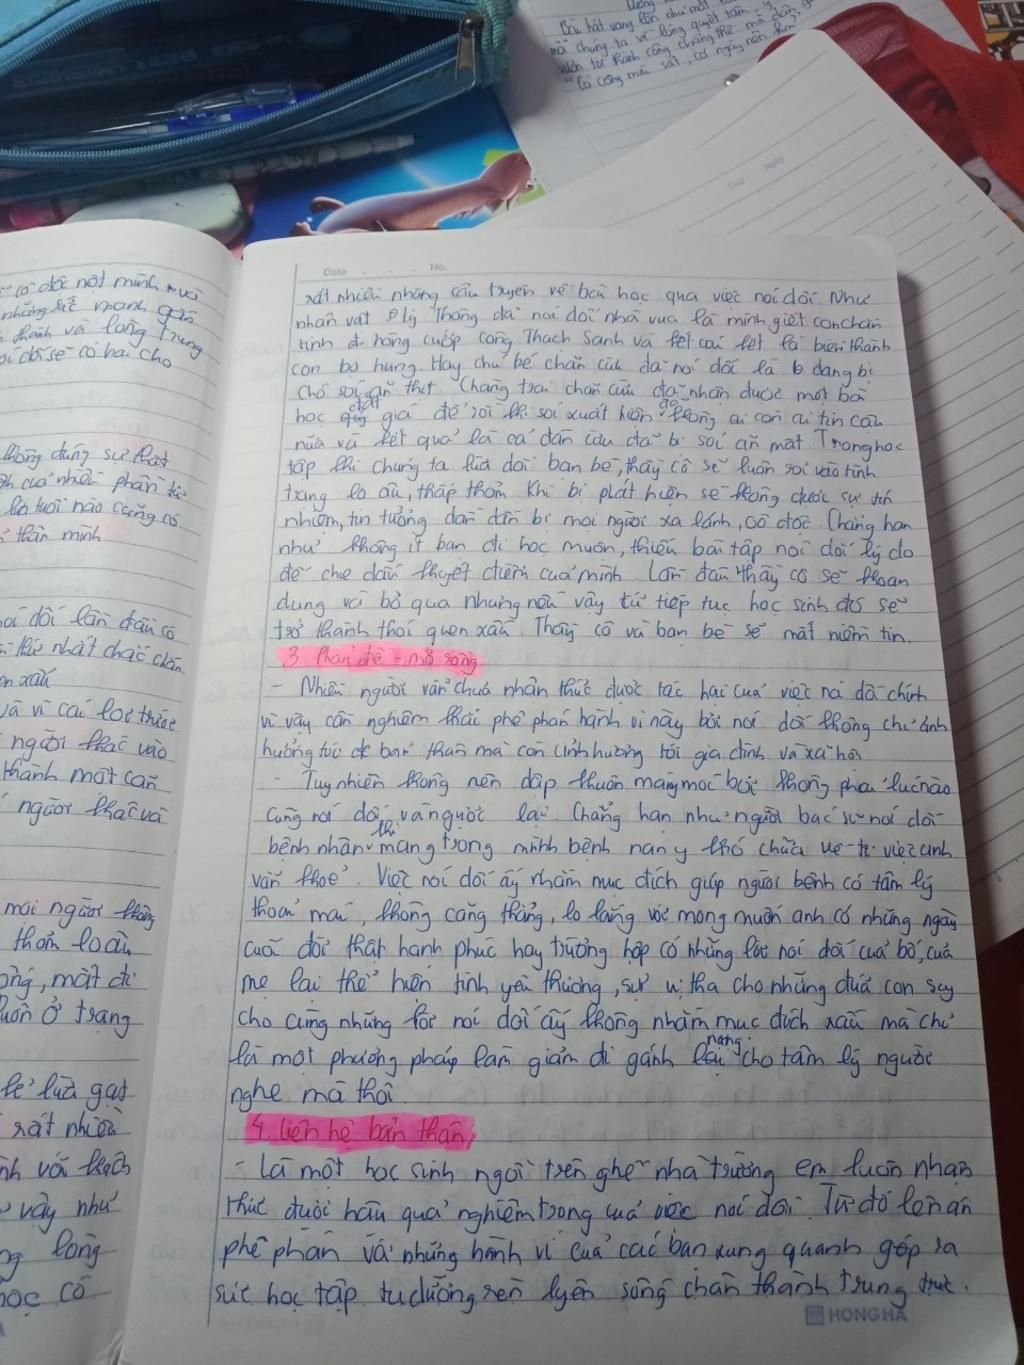 Bài hát vang lên như một
mỗi chúng ta về lòng quyết tâm, ý
vươn tới thành công chúng ta mà dân
"Có công mài sắt, có ngày nên kim"
Thứ ngày
cô độc một mình
những kẻ mạnh
thành và lòng trung
dối sẽ có hại cho
không đúng sự thật
của nhiều phần tử
lứa tuổi nào cũng có
thân mình
nói dối lần đầu có
thứ nhất chắc chắn
xấu
và vì cái lợi trước
người khác vào
thành một căn
người khác và
mọi người không
thơm loan
mất đi
luôn ở trạng
lẻ lừa gạt
rất nhiều
với trạch
vậy như
lòng
học có
Date No.
rất nhiều những câu truyện về bài học qua việc nói dối. Như
nhân vật Lý Thông đã nói dối nhà vua là mình giết con chăn
tinh đi hòng cướp công Thạch Sanh và kết cái kết là biến thành
con bọ hung. Hay chú bé chăn cừu đã nói dối là đang bị
chó sói ăn thịt. Chàng trai chăn cừu đã nhận được một bài
học đắt giá để rồi khi sói xuất hiện không ai còn ai tin cậu
nữa và kết quả là cả đàn cừu đã bị sói ăn mất. Trong học
tập khi chúng ta lừa dối bạn bè, thầy cô sẽ luôn rơi vào tình
trạng lo âu, thấp thỏm. Khi bị phát hiện sẽ không được sự tín
nhiệm, tin tưởng dần dần bị mọi người xa lánh, cô độc. Chẳng hạn
như không ít bạn đi học muộn, thiếu bài tập nói dối lý do
để che dấu khuyết điểm của mình. Lần đầu thầy cô sẽ khoan
dung và bỏ qua nhưng nếu vậy cứ tiếp tục học sinh đó sẽ
trở thành thói quen xấu. Thầy cô và bạn bè sẽ mất niềm tin.
3. Phản đề - mở rộng
- Nhiều người vẫn chưa nhận thức được tác hại của việc nói dối chính
vì vậy cần nghiêm khắc phê phán hành vi này bởi nói dối không chỉ ảnh
hưởng tới bản thân mà còn ảnh hưởng tới gia đình và xã hội
- Tuy nhiên không nên dập khuôn máy móc bởi không phải lúc nào
cũng nói dối và ngược lại. Chẳng hạn như người bác sĩ nói dối
bệnh nhân khi mang trong mình bệnh nan y khó chữa về việc anh
vẫn khoẻ. Việc nói dối ấy nhằm mục đích giúp người bệnh có tâm lý
thoải mái, không căng thẳng, lo lắng với mong muốn anh có những ngày
cuối đời thật hạnh phúc hay trường hợp có những lời nói dối của bố, của
mẹ lại thể hiện tình yêu thương, sự vị tha cho những đứa con suy
cho cùng những lời nói dối ấy không nhằm mục đích xấu mà chỉ
là một phương pháp làm giảm đi gánh nặng cho tâm lý người
nghe mà thôi.
4. Liên hệ bản thân
- Là một học sinh ngồi trên ghế nhà trường em luôn nhận
thức dưới hậu quả nghiêm trọng của việc nói dối. Từ đó lên án
phê phán và những hành vi của các bạn xung quanh góp ra
sức học tập tu dưỡng rèn lyện sống chân thành trung trực.
HONG HA